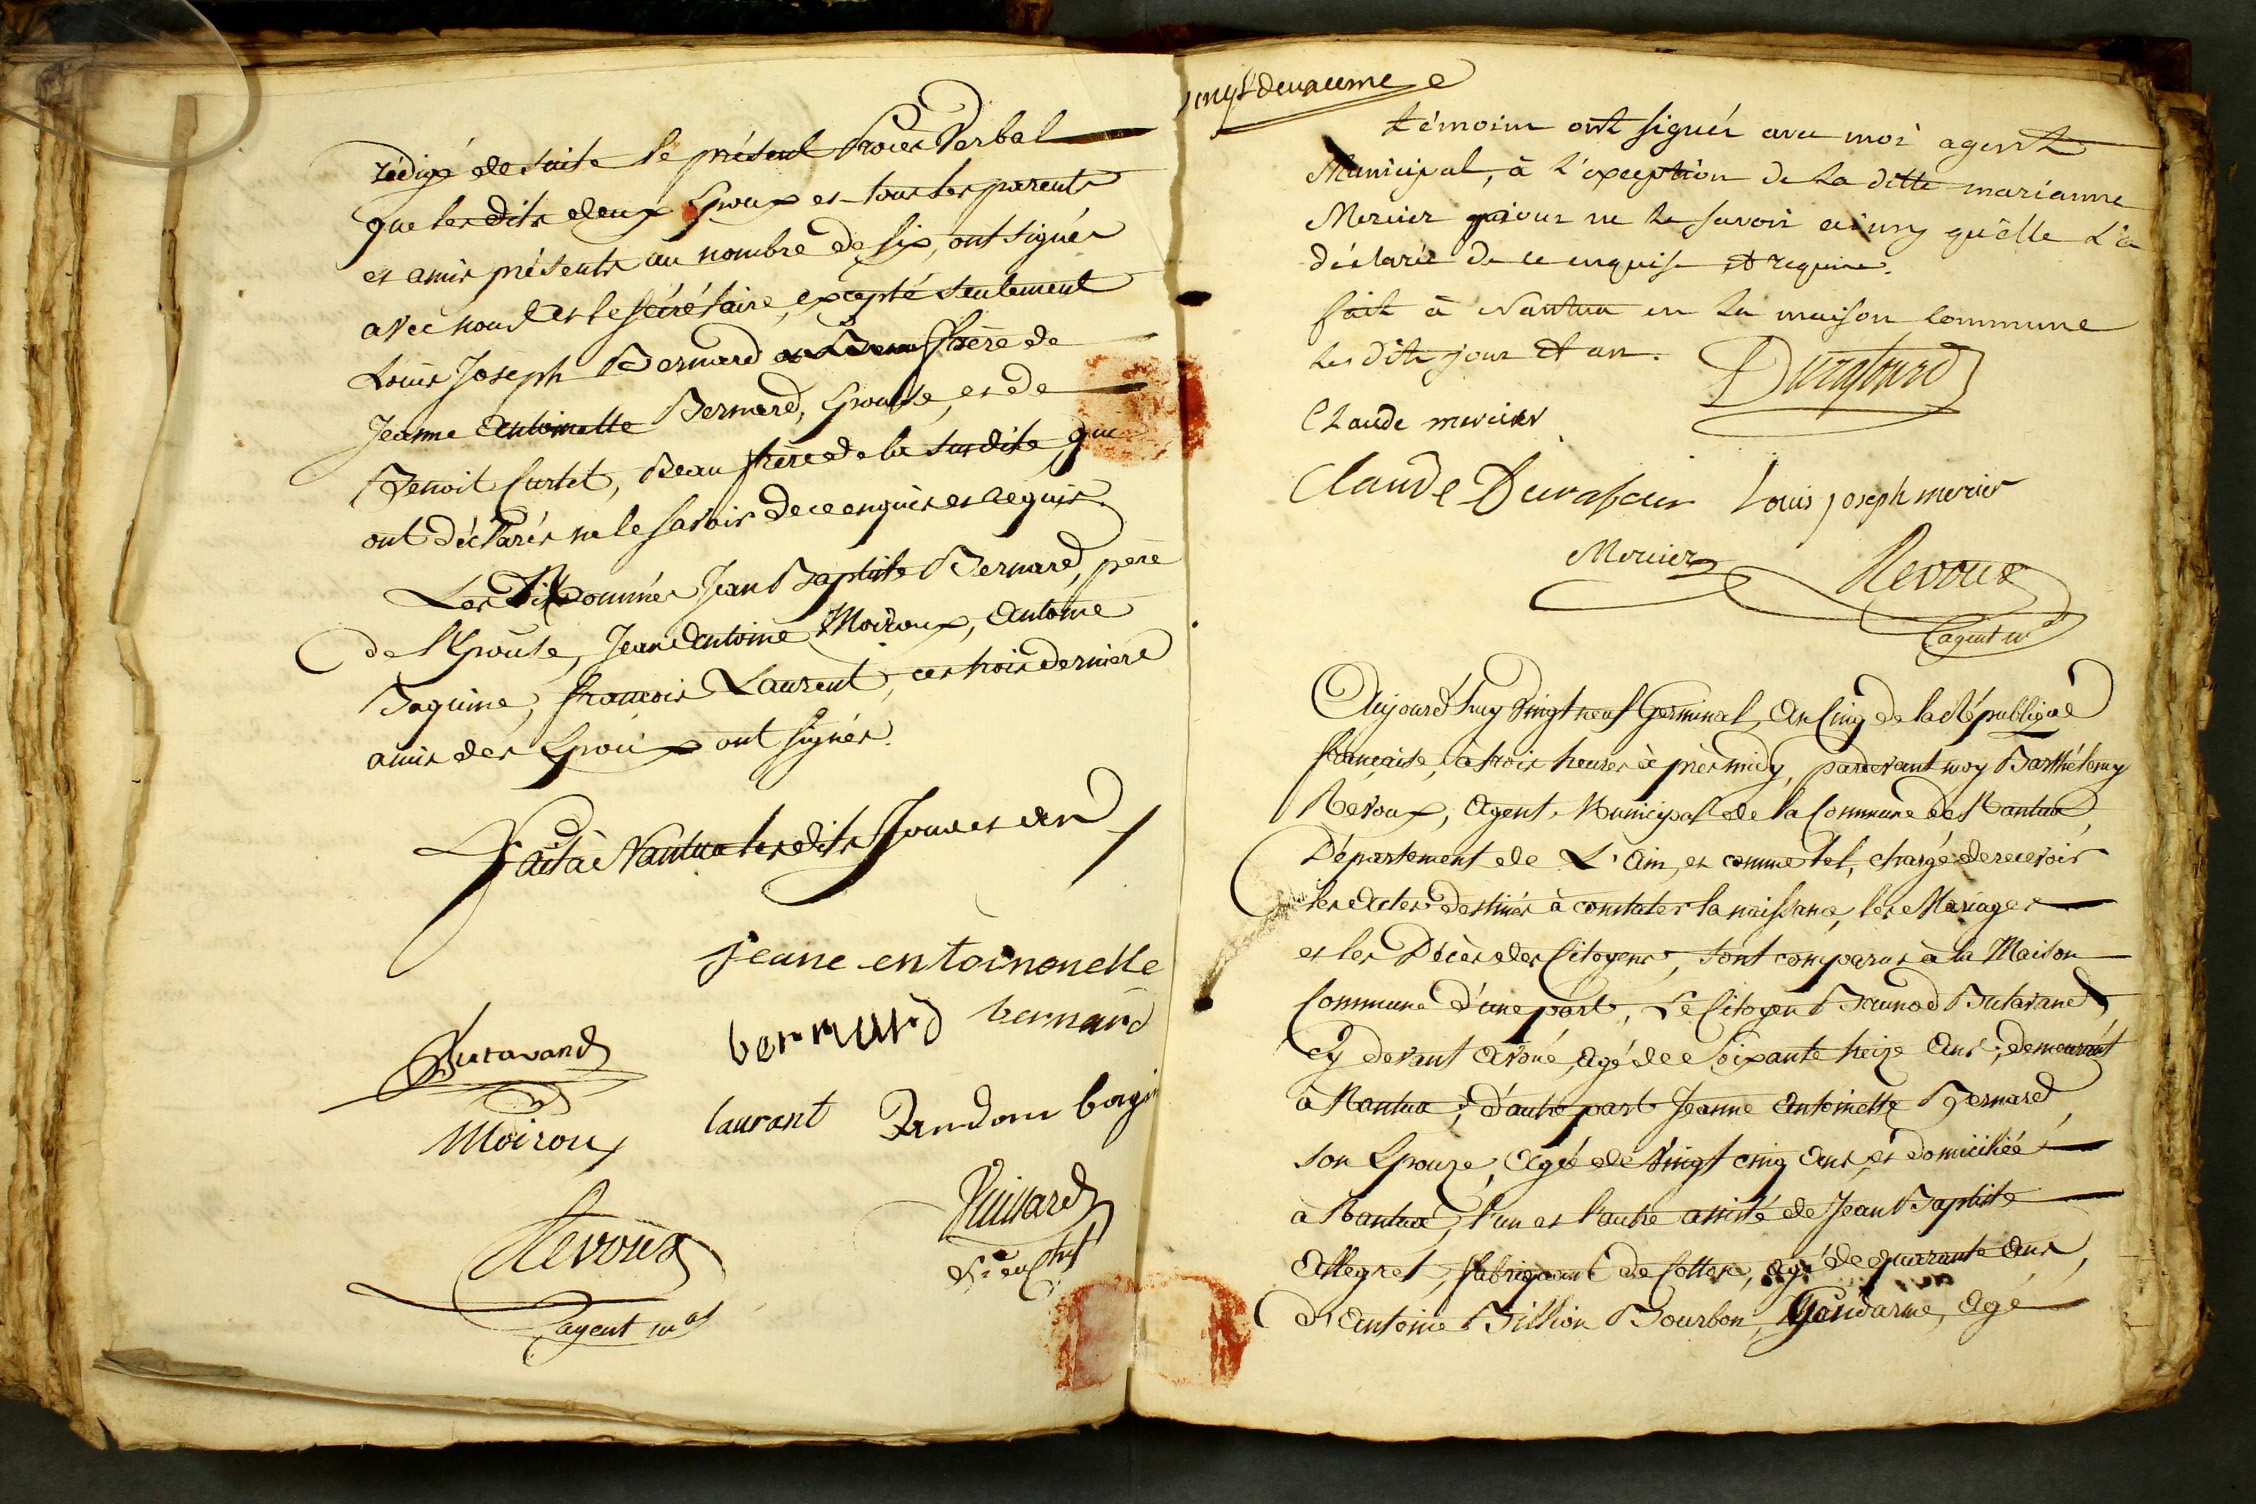 rédigé de suite le présent Procès Verbal
que les dits deux Epoux et tous les parents
et amis présents au nombre de six, ont signés
avec nous et le sécrétaire, excepté seulement
Louis Joseph Bernard frère de
Jeanne Antoinette Bernard, Epouse, et de
Benoit Curtet, Beau frère de la susdite, qui
ont déclarés ne le savoir de ce enquis et requis.
Les dits nommés Jean Baptiste Bernard, père
de l'Epouse, Jean Antoine Moiroux, Antoine
Baguine, françois Laurent, ces trois derniers
amis des Epoux ont signés.
Fait à Nantua les dits Jour et an
jeane entoinonelle
Butavand bernard bernard
Moiroux laurant bagin
Revoux Vuillard
agent mal
vingt deuxieme
témoins ont signés avec moi agent
Municipal, à l'exception de la ditte marianne
Mercier pour ne le savoir ainsy qu'elle l'a
déclaré de ce enquise et requise.
fait à Nantua en la maison commune
les dits jour et an.
Claude mercier
Claude Louis joseph mercier
Mercier Revoux
agent mal
Aujourd'huy Vingt neuf Germinal, An Cinq de la République
française, à trois heures après midy, pardevant moy Barthélemy
Revoux, Agent Municipal de la Commune de Nantua,
Département de L'Ain, et comme tel, chargé de recevoir
les Actes destinés à constater la naissance, les Mariages
et les Décès des Citoyens, sont comparus à la Maison
Commune d'une part, Le Citoyen Brunod Butavand
Cy devant Avoué, Agé de Soixante treize Ans, demeurant
à Nantua; d'autre part Jeanne Antoinette Bernard
son Epouze, Agée de Vingt cinq Ans, et domiciliée
à Nantua, l'un et l'autre assisté de Jean Baptiste
Allegret, fabriquant de Cottes, agé de quarante Ans,
d'Antoine Billion Bourbon, Gendarme, Agé